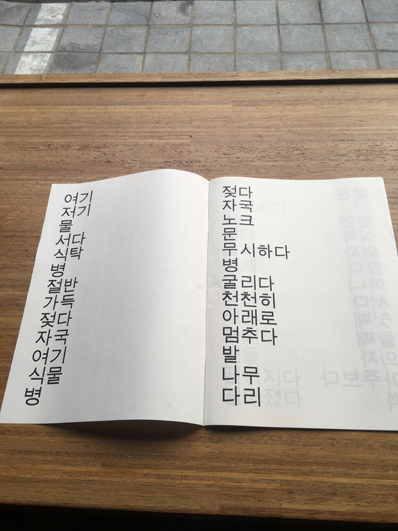 여기
저기
물
서다
식탁
병
절반
가득
젖다
자국
여기
식물
병
젖다
자국
노크
문
무시하다
병
굴리다
천천히
아래로
멈추다
발
나무
다리